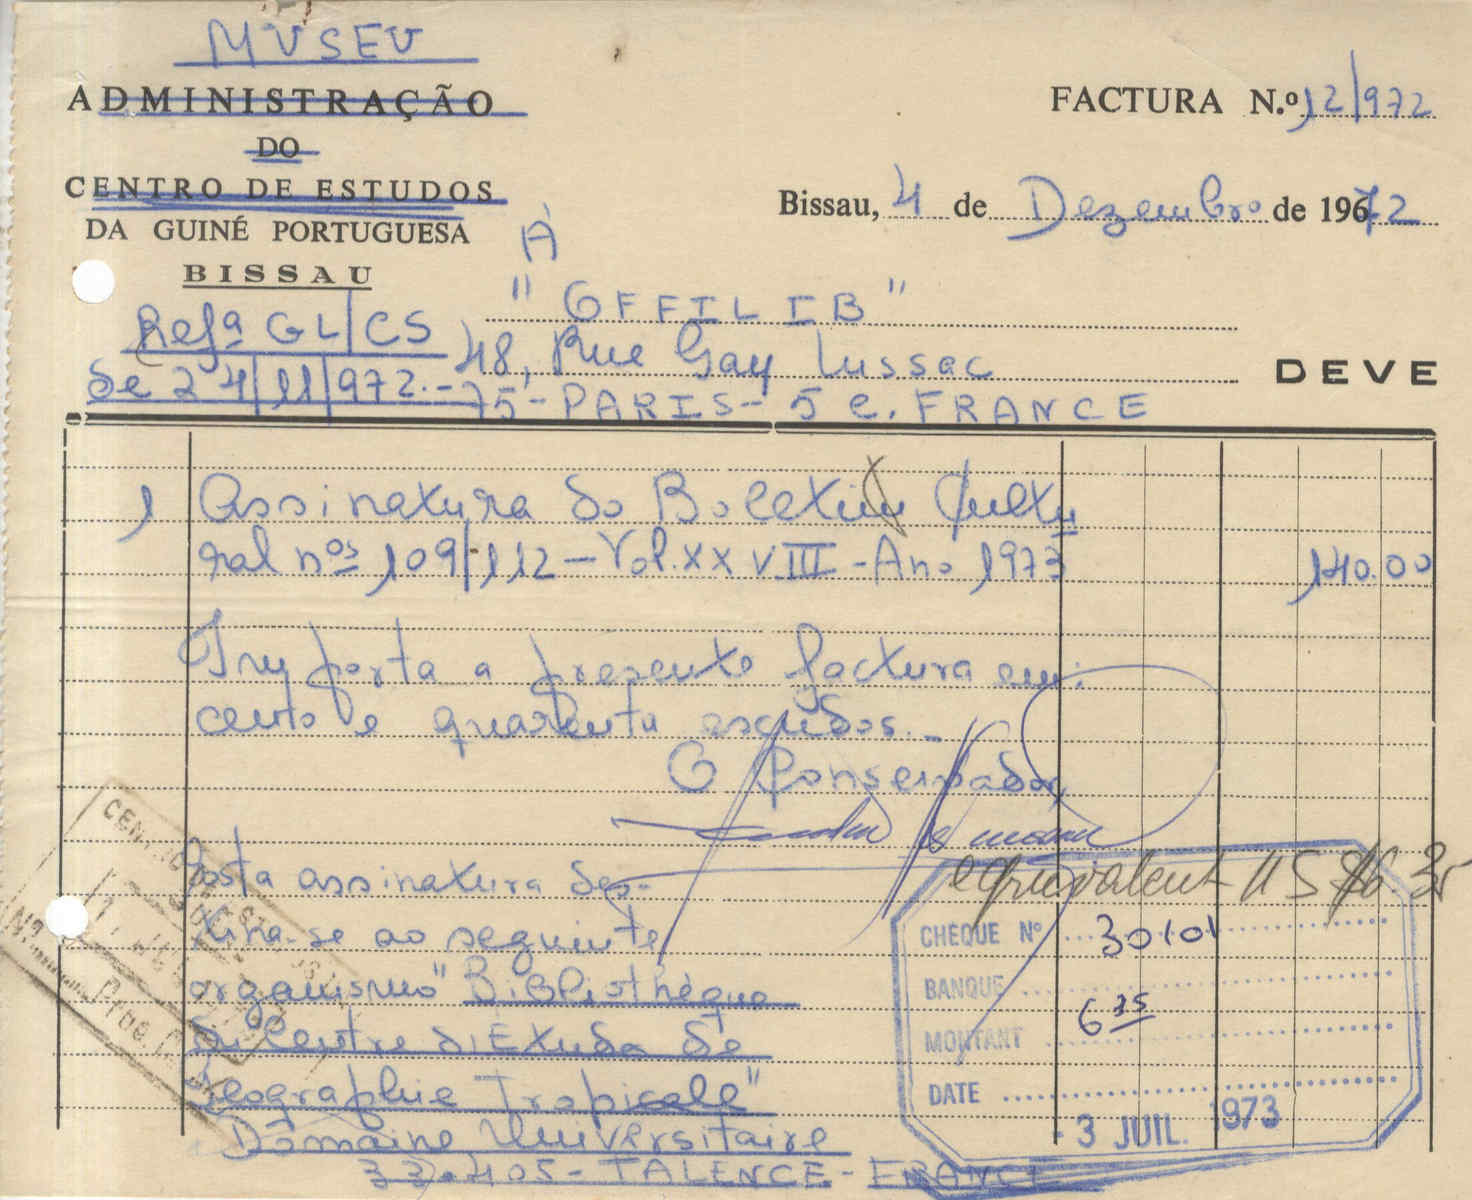 MUSEU
ADMINISTRAÇÃO
DO
CENTRO DE ESTUDOS
DA GUINÉ PORTUGUESA
BISSAU
FACTURA N.º 12/972
Bissau, 4 de Dezembro de 1972
À
"OFFILIB"
Refª GL/CS
de 24/11/972.-
48, Rue Gay Lussac
75-PARIS-5e. FRANCE
DEVE
1 Assinatura do Boletim Cultu
ral nos 109/112-Vol.XXVIII-Ano 1973 140.00
Importa a presente factura em:
cento e quarenta escudos.-
O Conservador,
equivalent US $ 6.35
Esta assinatura des-
tina-se ao seguinte
organismo "Bibliothèque
du Centre d'Etuda de
Geographie Tropicale"
Domaine Universitaire
33.405-TALENCE-FRANCE
CHEQUE Nº 30101
BANQUE
MONTANT 6 35
DATE
- 3 JUIL. 1973